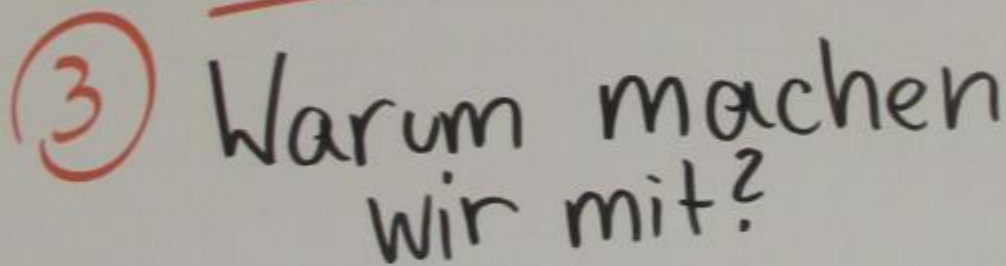 ③ Warum machen
wir mit?